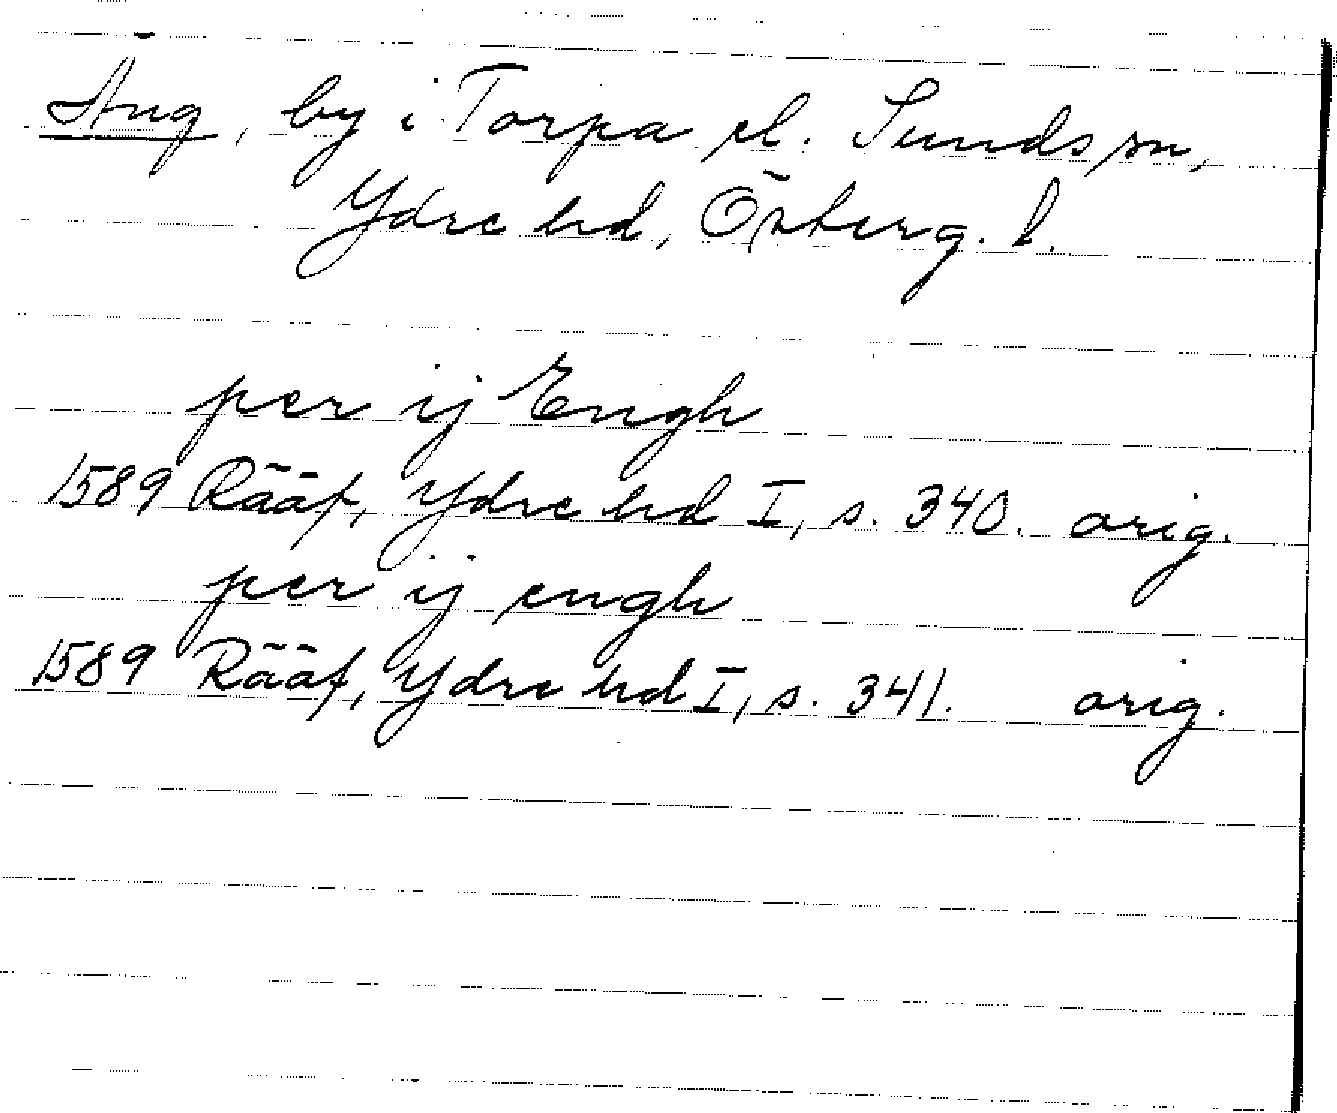 Äng, by i Torpa el. Sunds sn,
Ydre hd, Österg. l.
per ij Engh
1589 Rääf, Ydre hd I, s. 340. orig.
per ij engh
1589 Rääf, Ydre hd I, s. 341. orig.